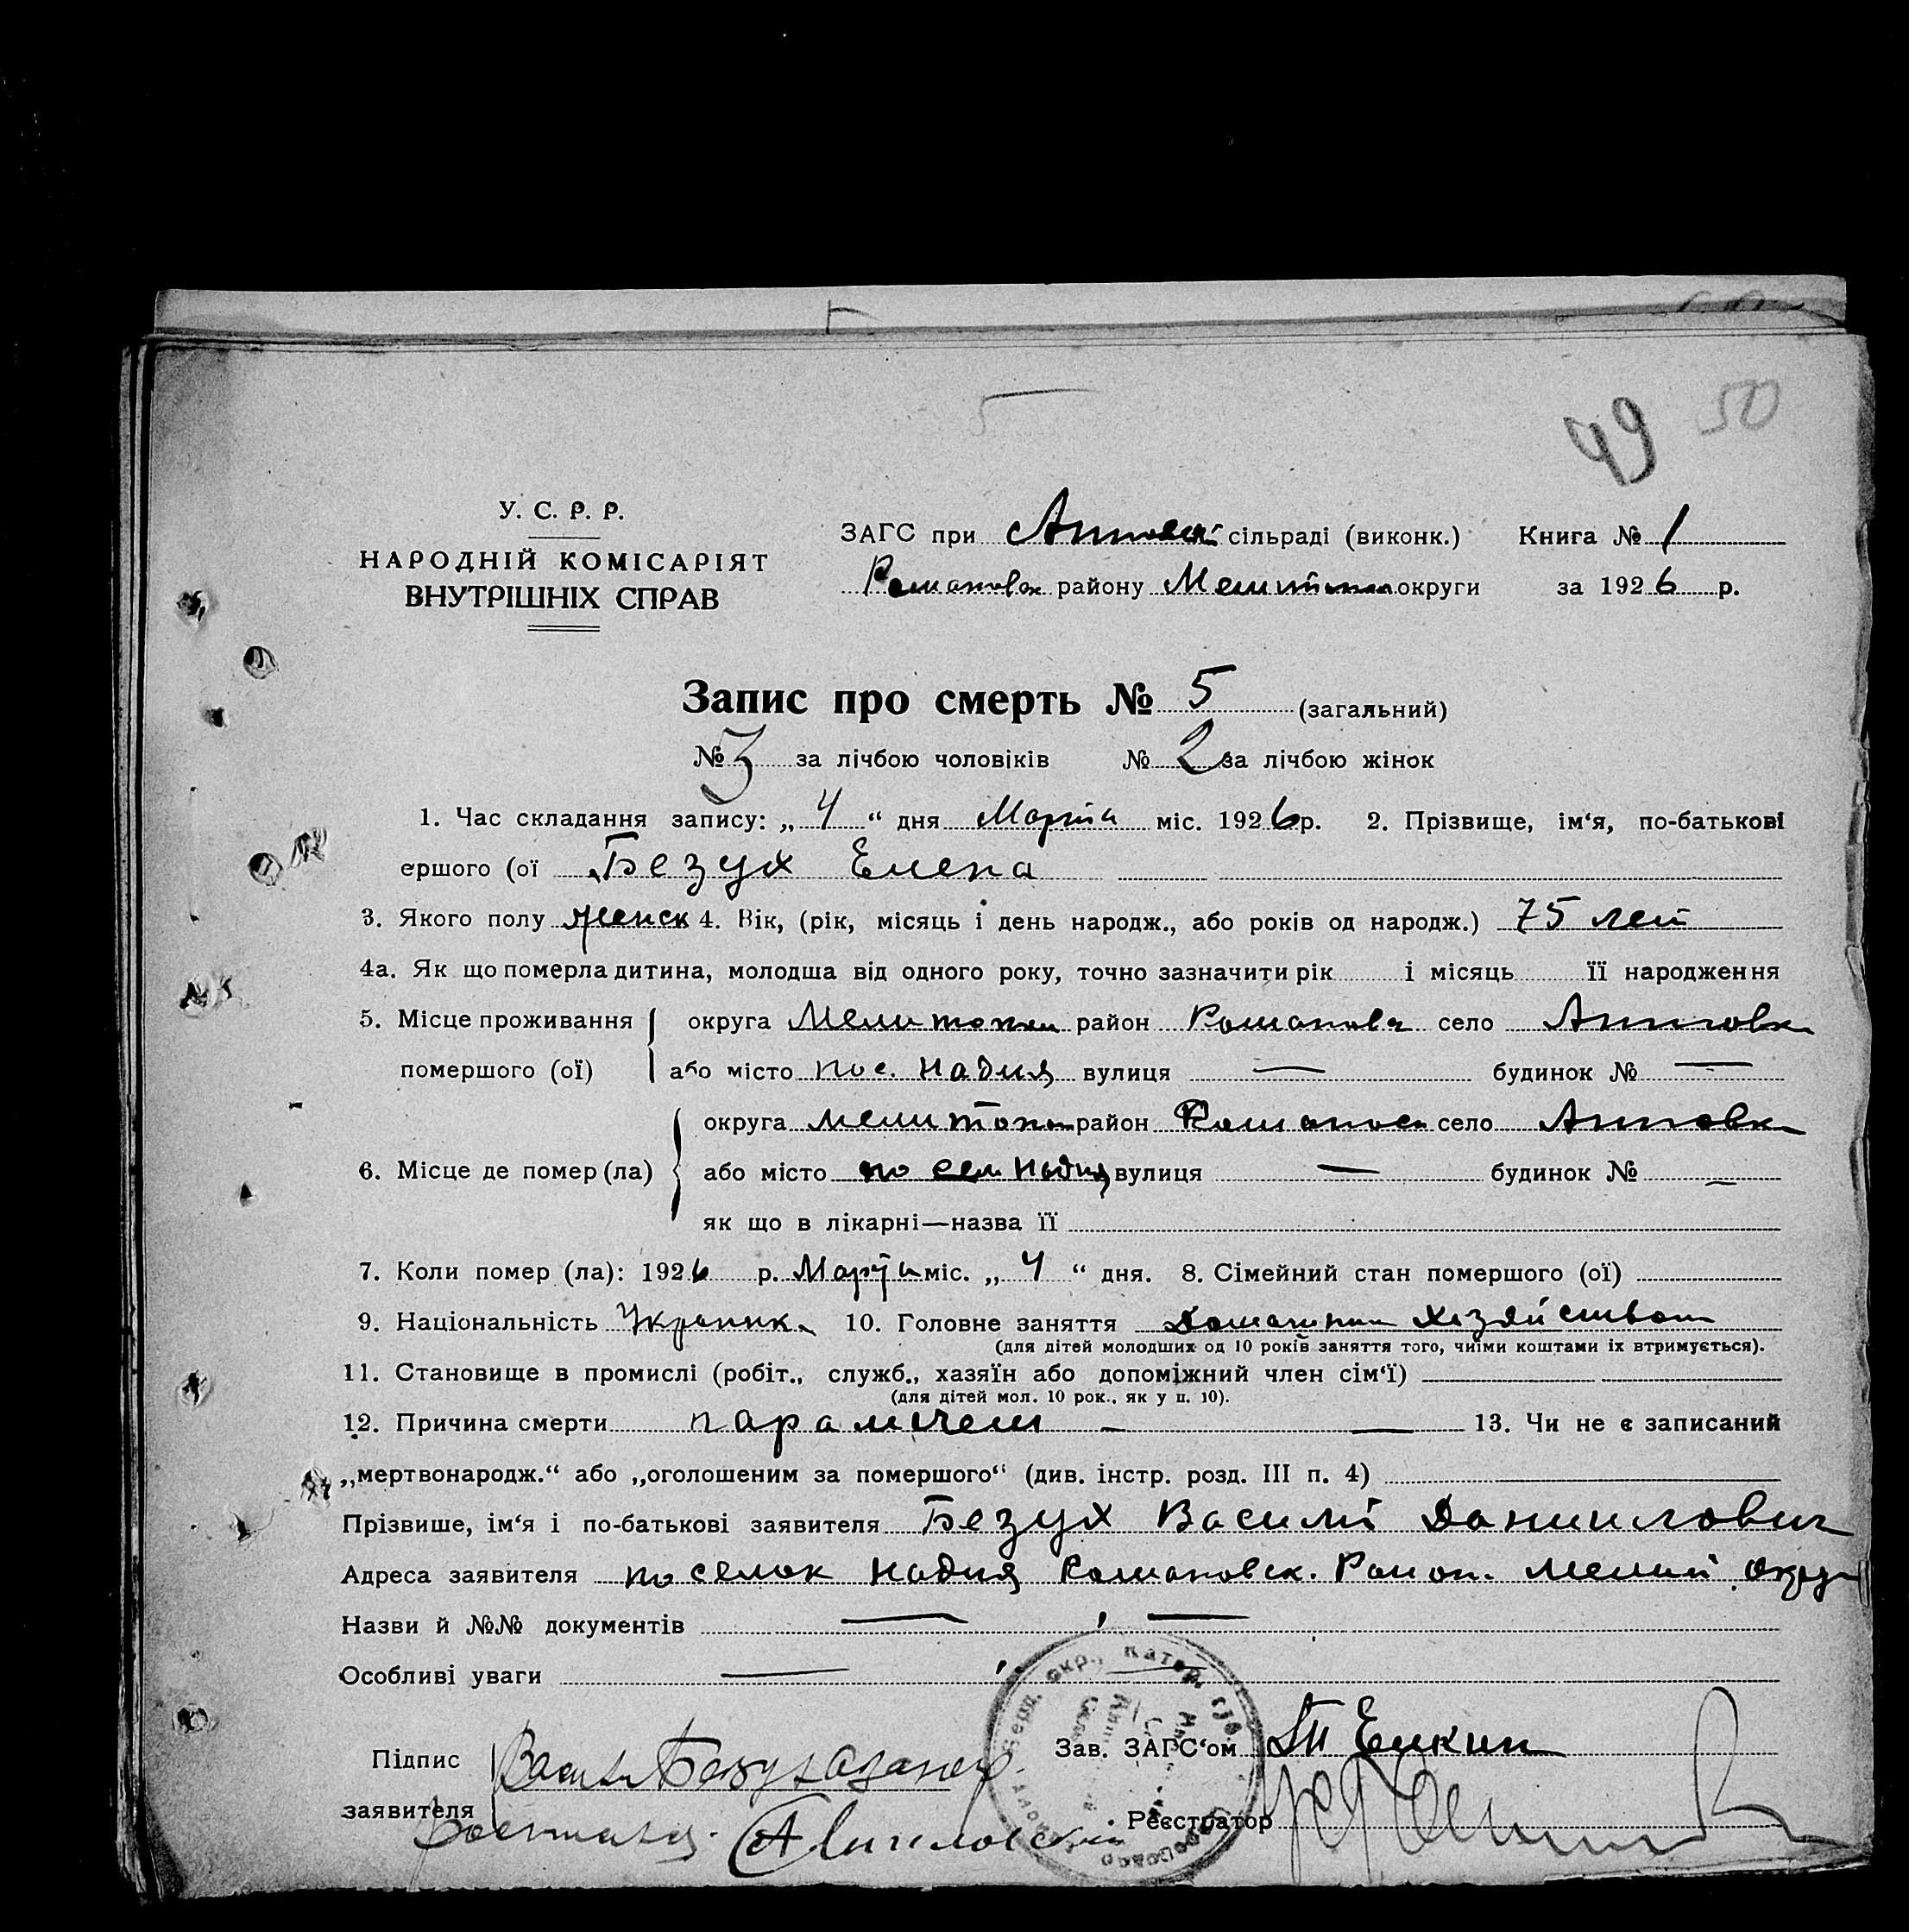 49 50
5
У. С. Р. Р.
НАРОДНІЙ КОМІСАРІЯТ
ВНУТРІШНІХ СПРАВ
ЗАГС при сільраді (виконк.) Книга № 1
Романовск району Мелитопол округи за 1926 р.
Запис про смерть № 5 (загальний)
№ 3 за лічбою чоловіків № 2 за лічбою жінок
1. Час складання запису: „ 4 “ дня Марта міс. 1926 р. 2. Прізвище, ім‘я, по-батькові
ершого (ої Безух Елена
3. Якого полу женск 4. Вік, (рік, місяць і день народж., або років од народж.) 75 лет
4а. Як що померла дитина, молодша від одного року, точно зазначити рік і місяць її народження
5. Місце проживання округа Мелитопол район Романовск село Анновка
помершого (ої) або місто пос. Надия вулиця — будинок № —
округа Мелитопол район Романовск село Анновка
6. Місце де помер (ла) або місто посел Надия вулиця — будинок № —
як що в лікарні—назва її
7. Коли помер (ла): 1926 р. Марта міс. „ 4 “ дня. 8. Сімейний стан помершого (ої)
9. Національність Украинка 10. Головне заняття Домашним хозяйством
(для дітей молодших од 10 років заняття того, чиїми коштами їх втримується).
11. Становище в промислі (робіт., служб., хазяїн або допоміжний член сім‘ї)
(для дітей мол. 10 рок., як у п. 10).
12. Причина смерти паралочем — — 13. Чи не є записаний
„мертвонародж.“ або „оголошеним за помершого“ (див. інстр. розд. III п. 4)
Прізвише, ім‘я і по-батькові заявителя Безух Василий Данилович
Адреса заявителя поселок Надия Романовск. Район. Мелит округ
Назви й №№ документів — —
Особливі уваги — —
Зав. ЗАГС‘ом
Підпис
заявителя
Реєстратор